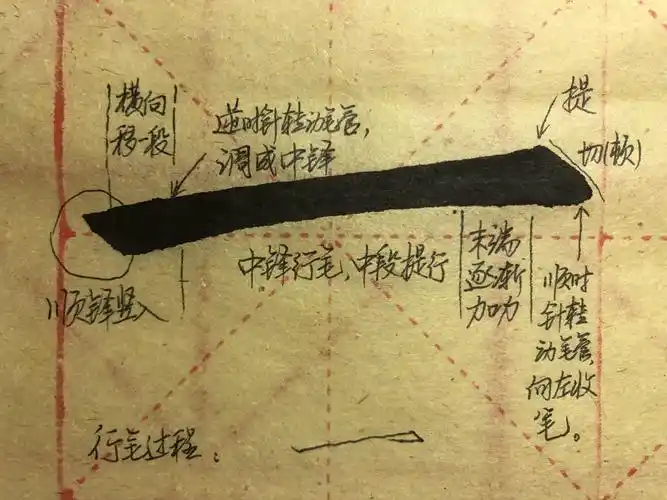 横向
移一段
逆时针转动笔管，
调成中锋
提
切(顿)
顺锋竖入
中锋行笔，中段提行
末端
逐渐
加力
顺时
针转
动笔管，
向左收
笔。
行笔过程：